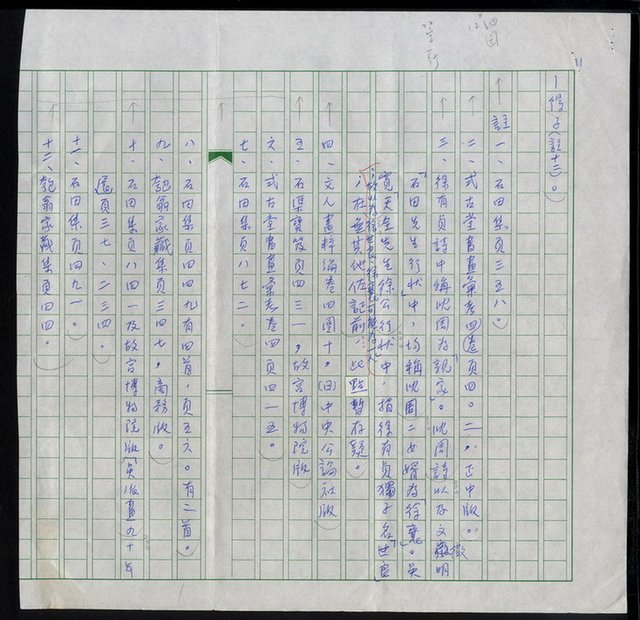 得子(註十三)。
註
一、石田集頁三五八。
二、式古堂書畫彙考四卷頁四。二，正中版。
三、徐有貞詩中稱沈周為「親家」。沈周詩以及文徵明
「石田先生行狀」中，均稱沈周二女婿為「徐襄」。吳
寬「天全先生徐公行狀」中，指徐有貞獨子名「世良」
，在無其他佐證前，此點暫存疑。
四、文人畫粹編卷四圖十，(日)中央公論社版
五、石渠寶笈頁四三一，故宮博物院版
六、式古堂書畫彙考卷四頁四一五。
七、石田集頁八七二。
八、石田集頁四四九有四首，頁五六。有二首。
九、匏翁家藏集頁三四七，商務版。
十、石田集頁八一一及故宮博物院版「吳派畫九十年
展」頁三七、二三四。
十一、石田集頁四九一。
十二、匏翁家藏集頁四四。